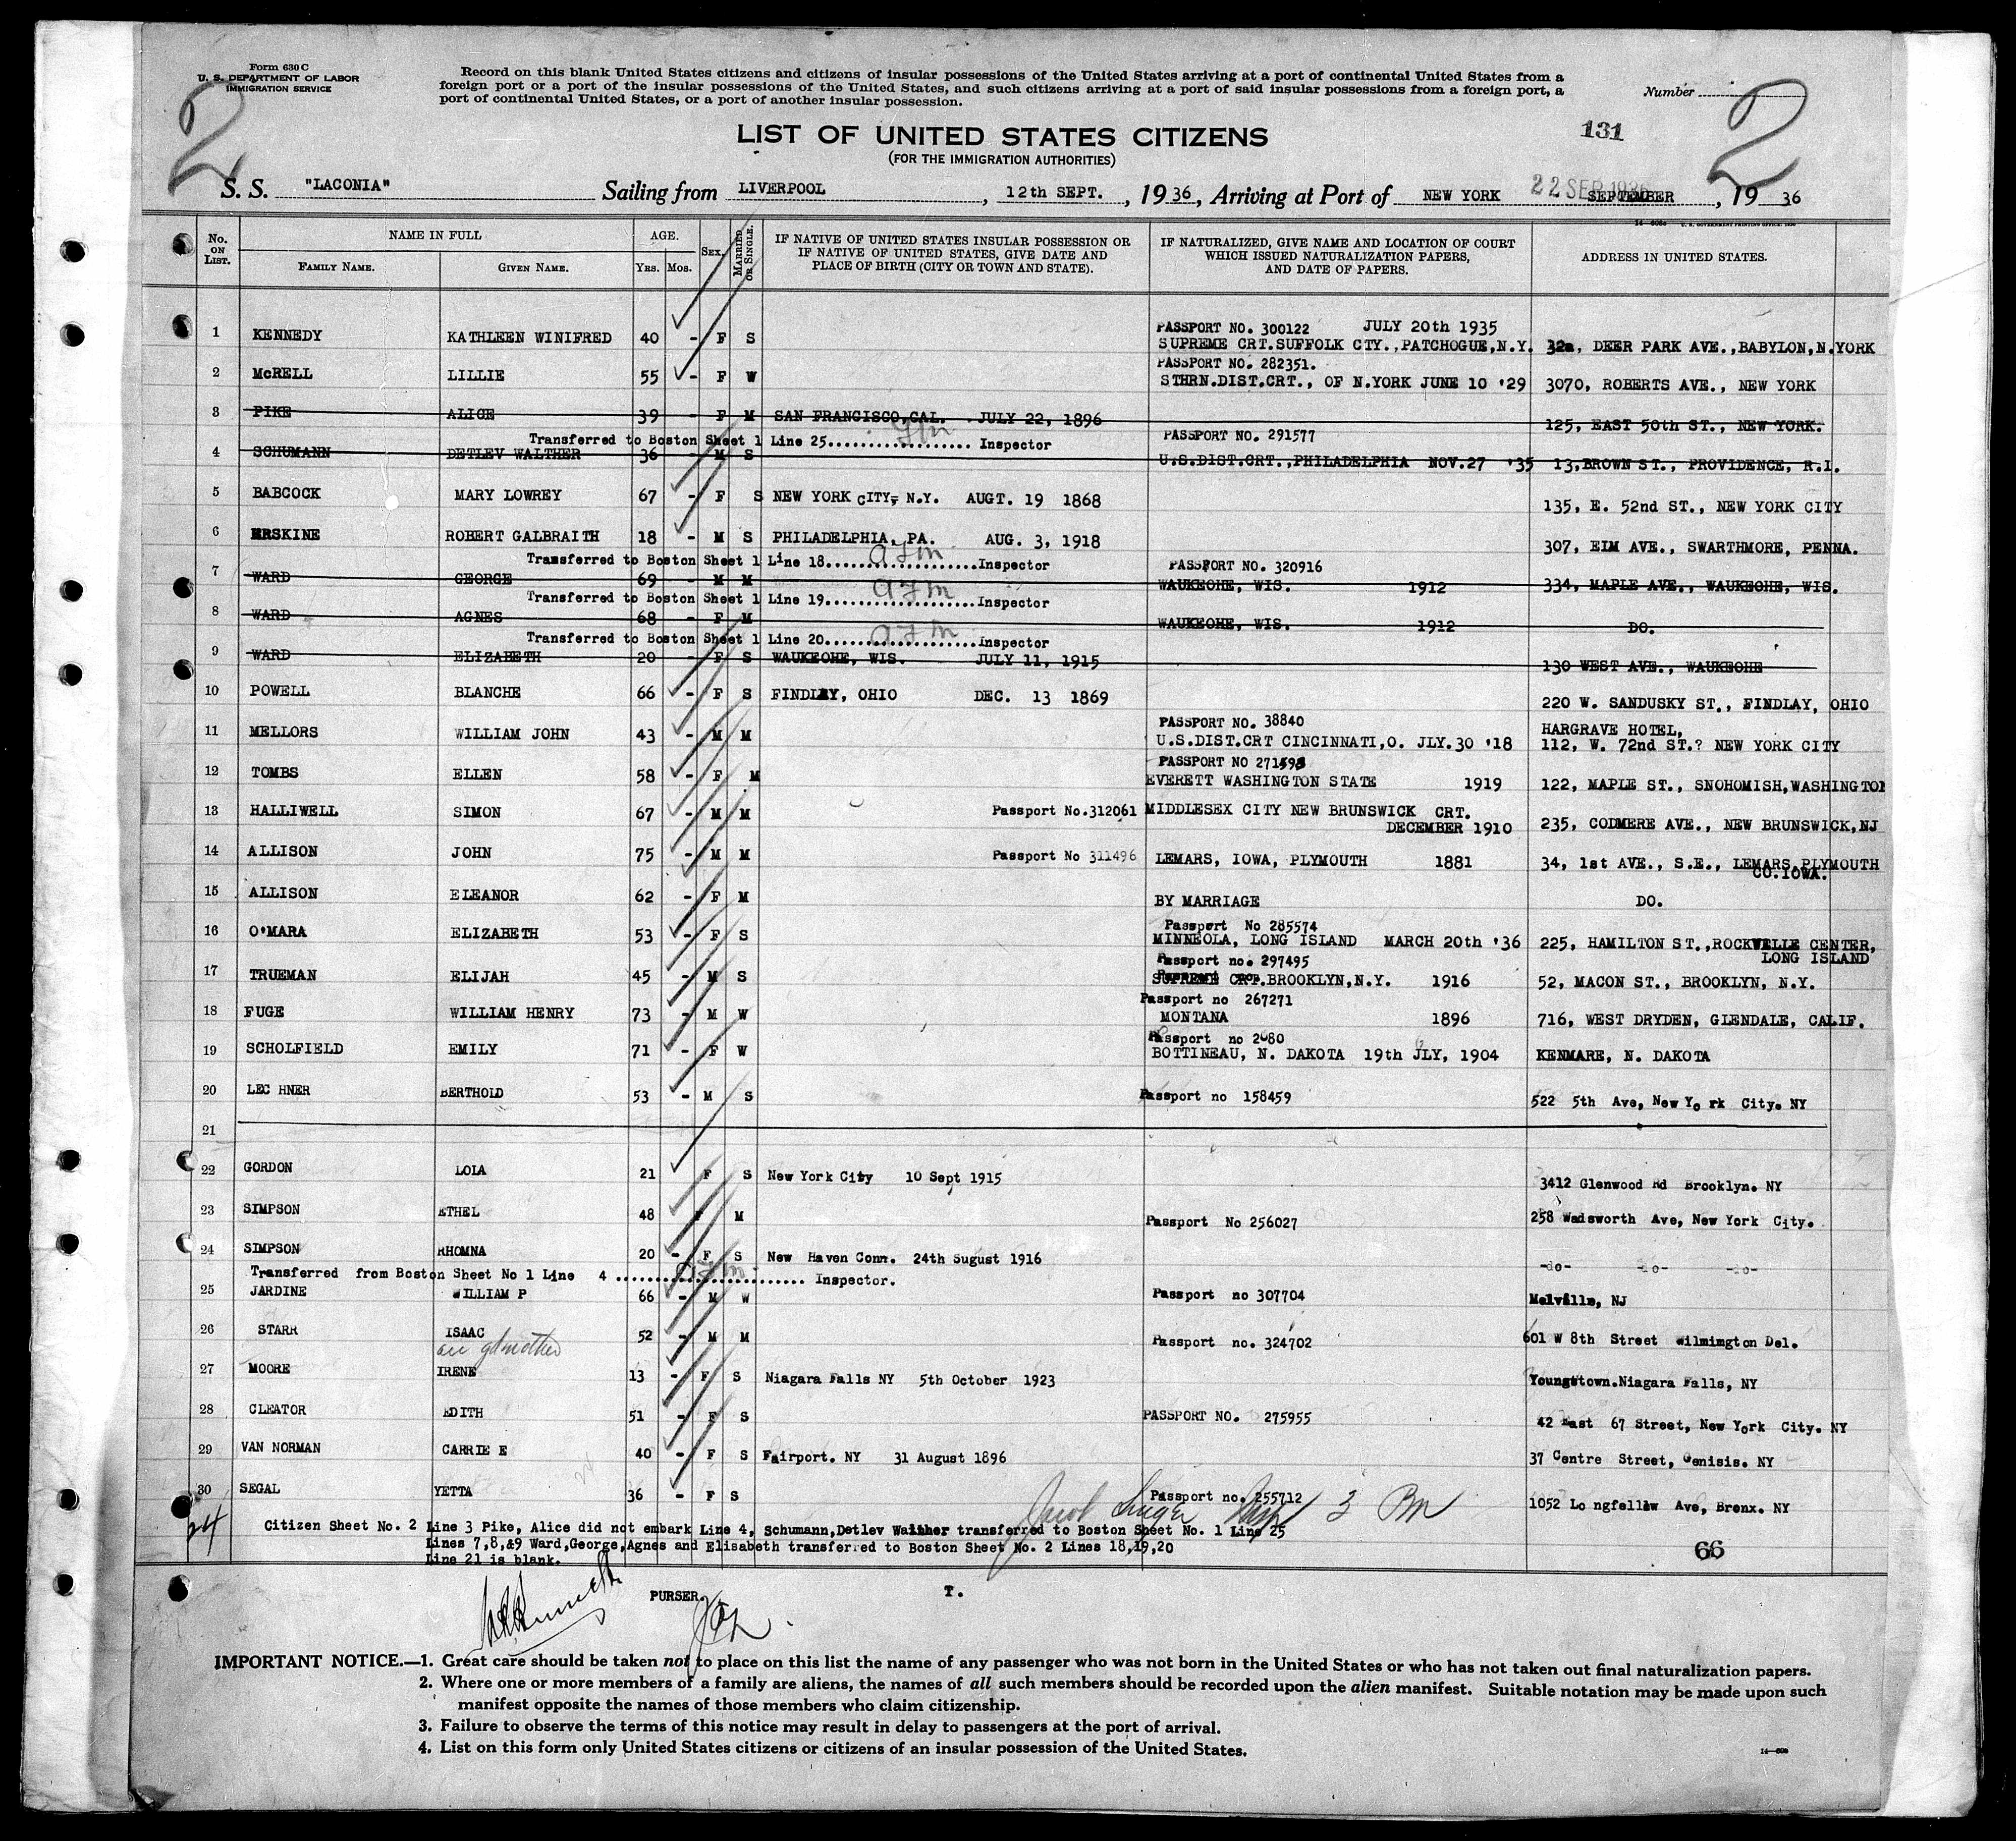 Form 630 C
U. S. DEPARTMENT OF LABOR
IMMIGRATION SERVICE
2
Record on this blank United States citizens and citizens of insular possessions of the United States arriving at a port of continental United States from a
foreign port or a port of the insular possessions of the United States, and such citizens arriving at a port of said insular possessions from a foreign port, a
port of continental United States, or a port of another insular possession.
Number
2
131
LIST OF UNITED STATES CITIZENS
(FOR THE IMMIGRATION AUTHORITIES)
S. S. "LACONIA" Sailing from LIVERPOOL, 12th SEPT., 1936, Arriving at Port of NEW YORK 22 SEP 1936 SEPTEMBER, 1936
No. ON LIST. NAME IN FULL AGE. SEX. MARRIED OR SINGLE. IF NATIVE OF UNITED STATES INSULAR POSSESSION OR IF NATIVE OF UNITED STATES, GIVE DATE AND PLACE OF BIRTH (CITY OR TOWN AND STATE). IF NATURALIZED, GIVE NAME AND LOCATION OF COURT WHICH ISSUED NATURALIZATION PAPERS, AND DATE OF PAPERS. ADDRESS IN UNITED STATES.
FAMILY NAME. GIVEN NAME. YRS. MOS.
PASSPORT NO. 300122 JULY 20th 1935
1 KENNEDY KATHLEEN WINIFRED 40 - F S SUPREME CRT.SUFFOLK CTY.,PATCHOGUE,N.Y. 32a, DEER PARK AVE.,BABYLON,N.YORK
PASSPORT NO. 282351.
2 McRELL LILLIE 55 - F W STHRN.DIST.CRT., OF N.YORK JUNE 10 '29 3070, ROBERTS AVE., NEW YORK
3 PIKE ALICE 39 - F M SAN FRANCISCO,CAL. JULY 22, 1896 125, EAST 50th ST., NEW YORK.
Transferred to Boston Sheet 1 Line 25 Inspector PASSPORT NO. 291577
4 SCHUMANN DETLEV WALTHER 36 - M S U.S.DIST.CRT.,PHILADELPHIA NOV.27 '35 13,BROWN ST., PROVIDENCE, R.I.
5 BABCOCK MARY LOWREY 67 - F S NEW YORK CITY, N.Y. AUGT. 19 1868 135, E. 52nd ST., NEW YORK CITY
6 ERSKINE ROBERT GALBRAITH 18 - M S PHILADELPHIA, PA. AUG. 3, 1918 307, EIM AVE., SWARTHMORE, PENNA.
Transferred to Boston Sheet 1 Line 18 Inspector PASSPORT NO. 320916
7 WARD GEORGE 69 - M M WAUKEOHE, WIS. 1912 334, MAPLE AVE., WAUKEOHE, WIS.
Transferred to Boston Sheet 1 Line 19 Inspector
8 WARD AGNES 68 - F M WAUKEOHE, WIS. 1912 DO.
Transferred to Boston Sheet 1 Line 20 Inspector
9 WARD ELIZABETH 20 - F S WAUKEOHE, WIS. JULY 11, 1915 130 WEST AVE., WAUKEOHE
10 POWELL BLANCHE 66 - F S FINDLAY, OHIO DEC. 13 1869 220 W. SANDUSKY ST., FINDLAY, OHIO
PASSPORT NO. 38840 HARGRAVE HOTEL,
11 MELLORS WILLIAM JOHN 43 - M M U.S.DIST.CRT CINCINNATI,O. JLY.30 '18 112, W. 72nd ST.? NEW YORK CITY
PASSPORT NO
12 TOMBS ELLEN 58 - F M EVERETT WASHINGTON STATE 1919 122, MAPLE ST., SNOHOMISH,WASHINGTON
13 HALLIWELL SIMON 67 - M M Passport No.312061 MIDDLESEX CITY NEW BRUNSWICK CRT.
DECEMBER 1910 235, CODMERE AVE., NEW BRUNSWICK,NJ
14 ALLISON JOHN 75 - M M Passport No 311496 LEMARS, IOWA, PLYMOUTH 1881 34, 1st AVE., S.E., LEMARS,PLYMOUTH
CO.IOWA.
15 ALLISON ELEANOR 62 - F M BY MARRIAGE DO.
Passport No 285574
16 O'MARA ELIZABETH 53 - F S MINNEOLA, LONG ISLAND MARCH 20th '36 225, HAMILTON ST.,ROCKVILLE CENTER,
LONG ISLAND
Passport no. 297495
17 TRUEMAN ELIJAH 45 - M S SUPREME CRT.BROOKLYN,N.Y. 1916 52, MACON ST., BROOKLYN, N.Y.
Passport no 267271
18 FUGE WILLIAM HENRY 73 - M W MONTANA 1896 716, WEST DRYDEN, GLENDALE, CALIF.
Passport no 2080
19 SCHOLFIELD EMILY 71 - F W BOTTINEAU, N. DAKOTA 19th JLY, 1904 KENMARE, N. DAKOTA
20 LEC HNER BERTHOLD 53 - M S Passport no 158459 522 5th Ave, New Yo rk City. NY
21
22 GORDON LOLA 21 F S New York City 10 Sept 1915 3412 Glenwood Rd Brooklyn. NY
23 SIMPSON ETHEL 48 F M Passport No 256027 258 Wadsworth Ave, New York City.
24 SIMPSON RHOMNA 20 - F S New Haven Conn. 24th Sugust 1916 -do- -do- -do-
Transferred from Boston Sheet No 1 Line 4 Inspector.
25 JARDINE WILLIAM P 66 - M W Passport no 307704 Melville, NJ
26 STARR ISAAC 52 - M M Passport no. 324702 601 W 8th Street Wilmington Del.
27 MOORE IRENE 13 - F S Niagara Falls NY 5th October 1923 Youngstown.Niagara Falls, NY
28 CLEATOR EDITH 51 - F S PASSPORT NO. 275955 42 East 67 Street, New York City. NY
29 VAN NORMAN CARRIE E 40 - F S Fairport. NY 31 August 1896 37 Centre Street, Genisis. NY
30 SEGAL YETTA 36 - F S Passport no. 255712 1052 Lo ngfellow Ave, Bronx. NY
24
Citizen Sheet No. 2 Line 3 Pike, Alice did not embark Line 4, Schumann,Detlev Walther transferred to Boston Sheet No. 1 Line 25
Lines 7,8,&9 Ward,George,Agnes and Elisabeth transferred to Boston Sheet No. 2 Lines 18,19,20
Line 21 is blank.
66
PURSER. T.
IMPORTANT NOTICE.—1. Great care should be taken not to place on this list the name of any passenger who was not born in the United States or who has not taken out final naturalization papers.
2. Where one or more members of a family are aliens, the names of all such members should be recorded upon the alien manifest. Suitable notation may be made upon such
manifest opposite the names of those members who claim citizenship.
3. Failure to observe the terms of this notice may result in delay to passengers at the port of arrival.
4. List on this form only United States citizens or citizens of an insular possession of the United States.